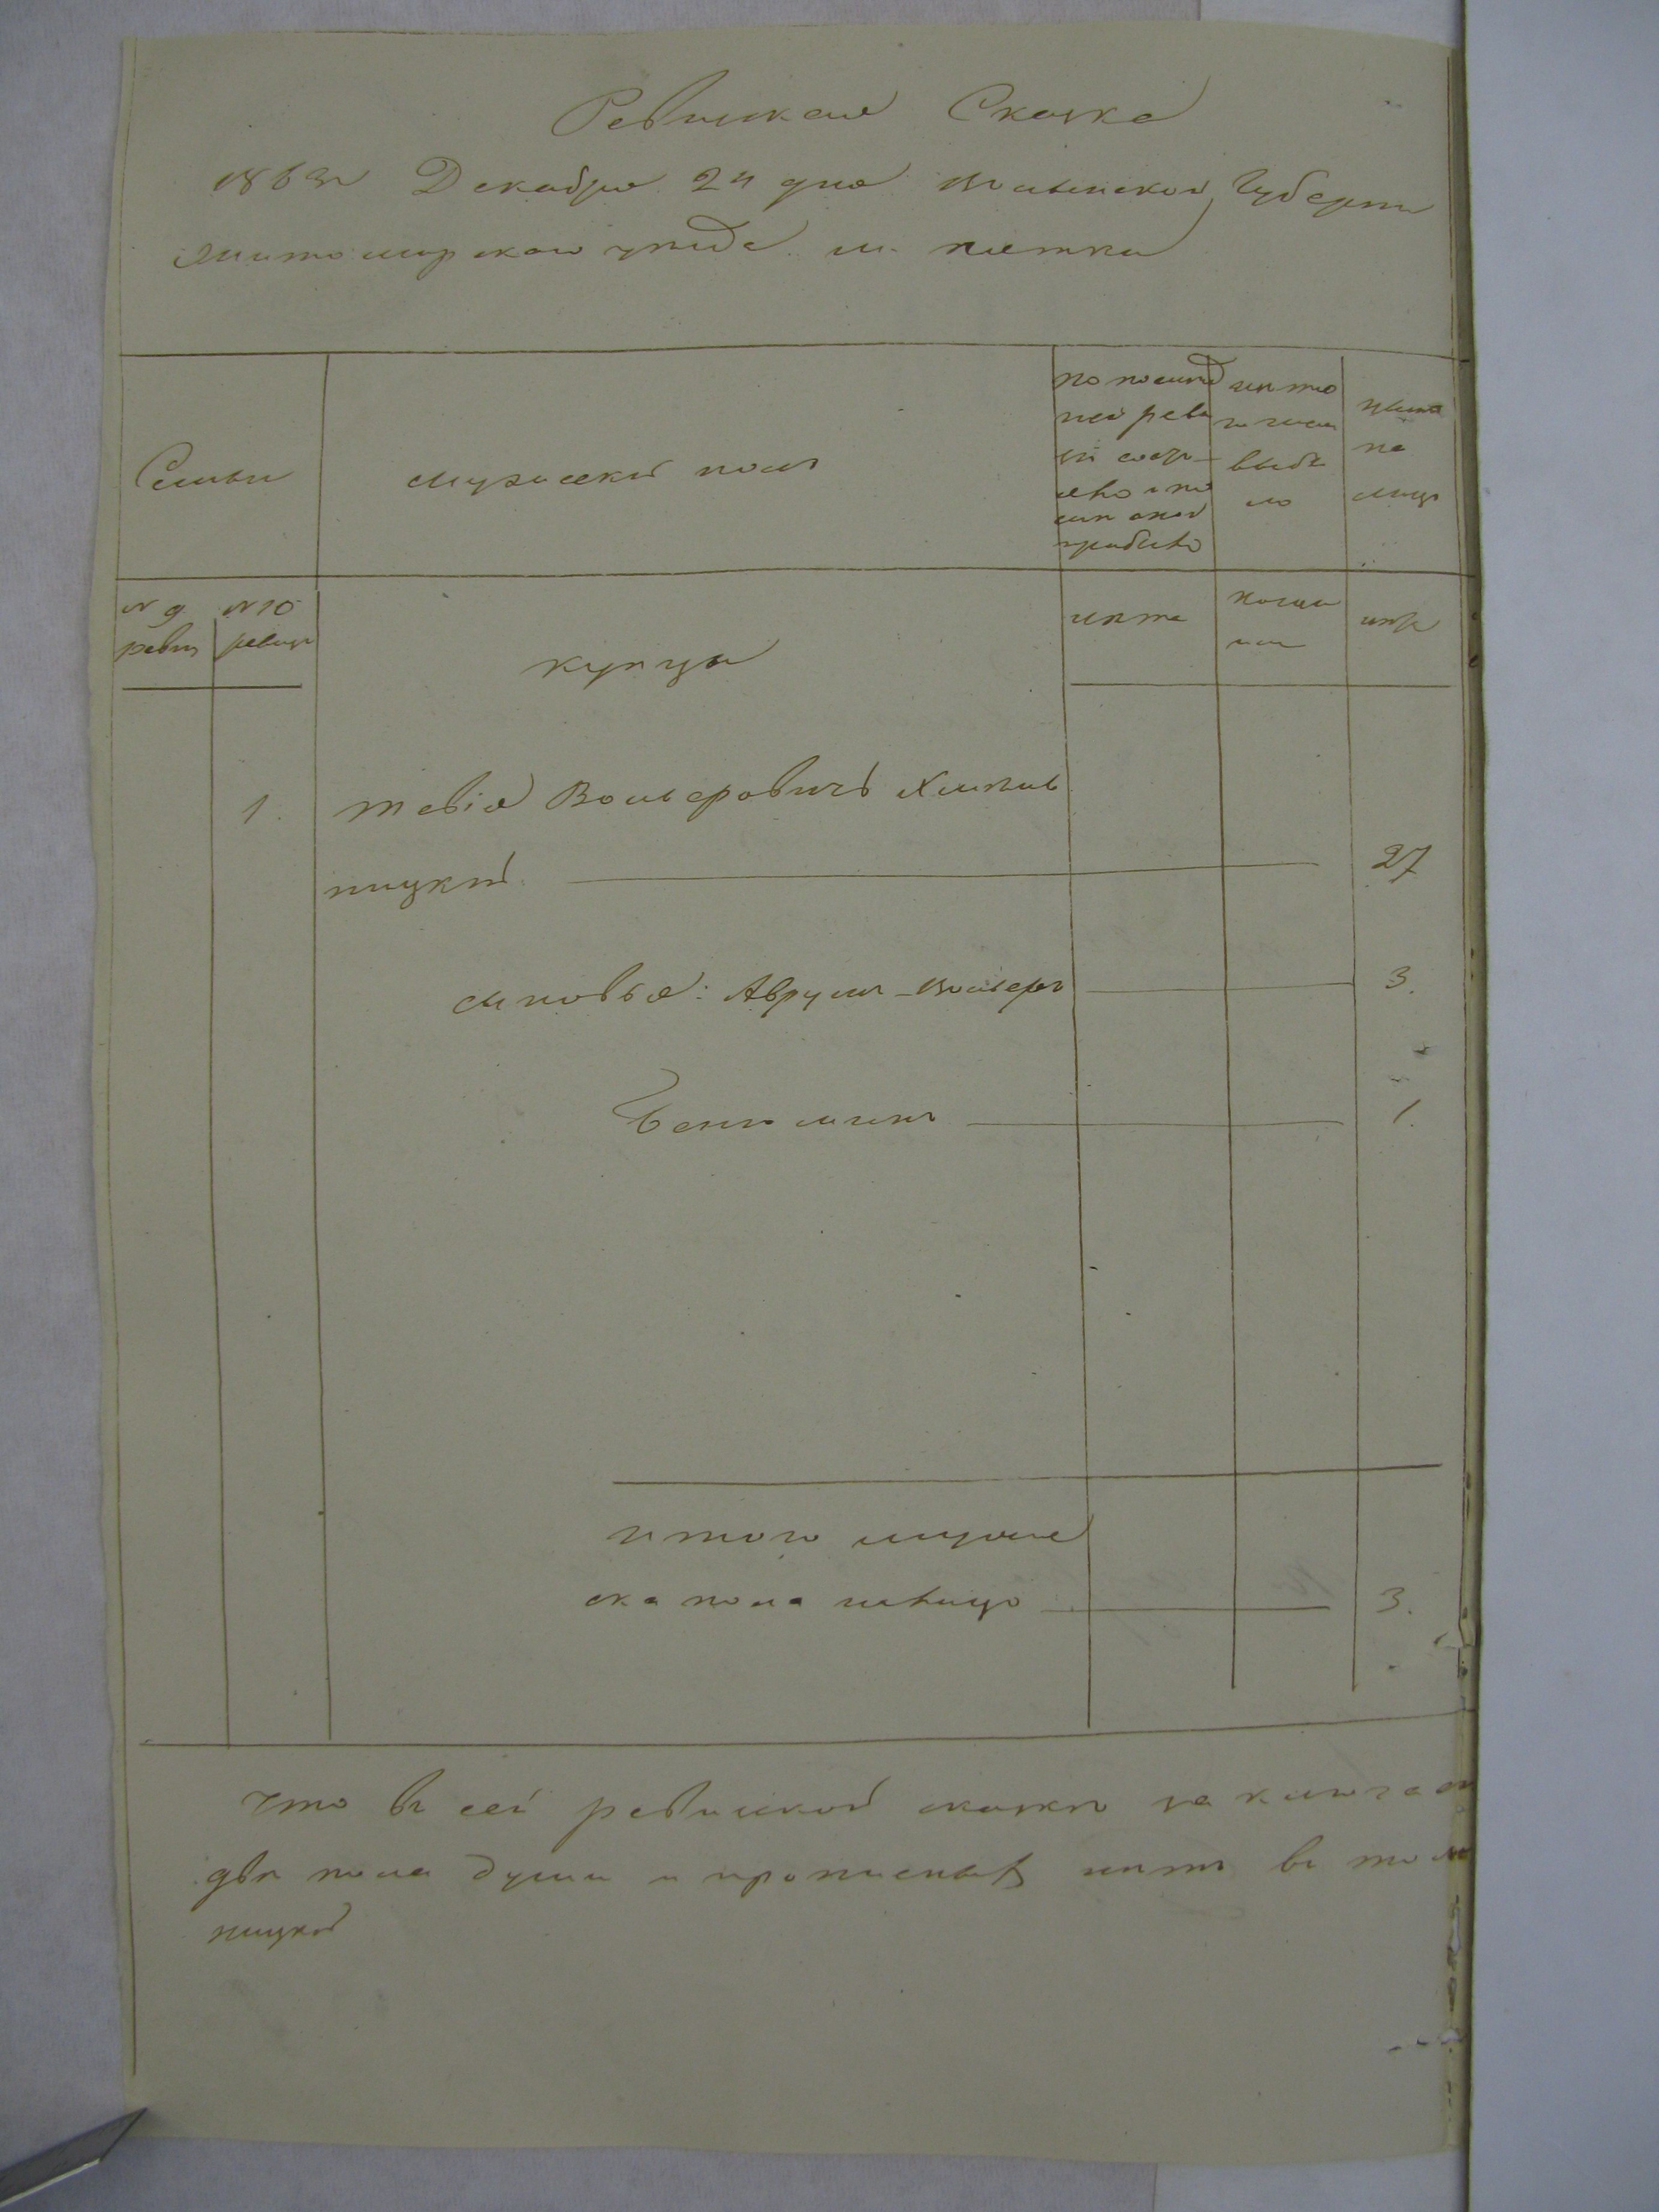 Ревизская Сказка
1863г Декабря 24 дня Волынской Губерни
Житомирскаго уезда м. пятки
Семьи
мужеский полъ
по послед
ней реви
зіи состо
яло и по
слѣ оной
прибыло
изъ то
го числа
выбы
ло
нынѣ
на
лицо
№ 9 ревиз
№ 10 ревизи
купцы
лѣта
когда
имен
лѣтъ
1. Тевіа Волѣровичъ Хмѣль
ницкій 27
сыновья: Аврумъ-Волѣръ 3.
Беніоминъ 1.
итого мужес
ка пола налицо 3.
что въ сей ревизской сказкѣ заключает
два пола души и прописныхъ нѣтъ въ том
ницкій